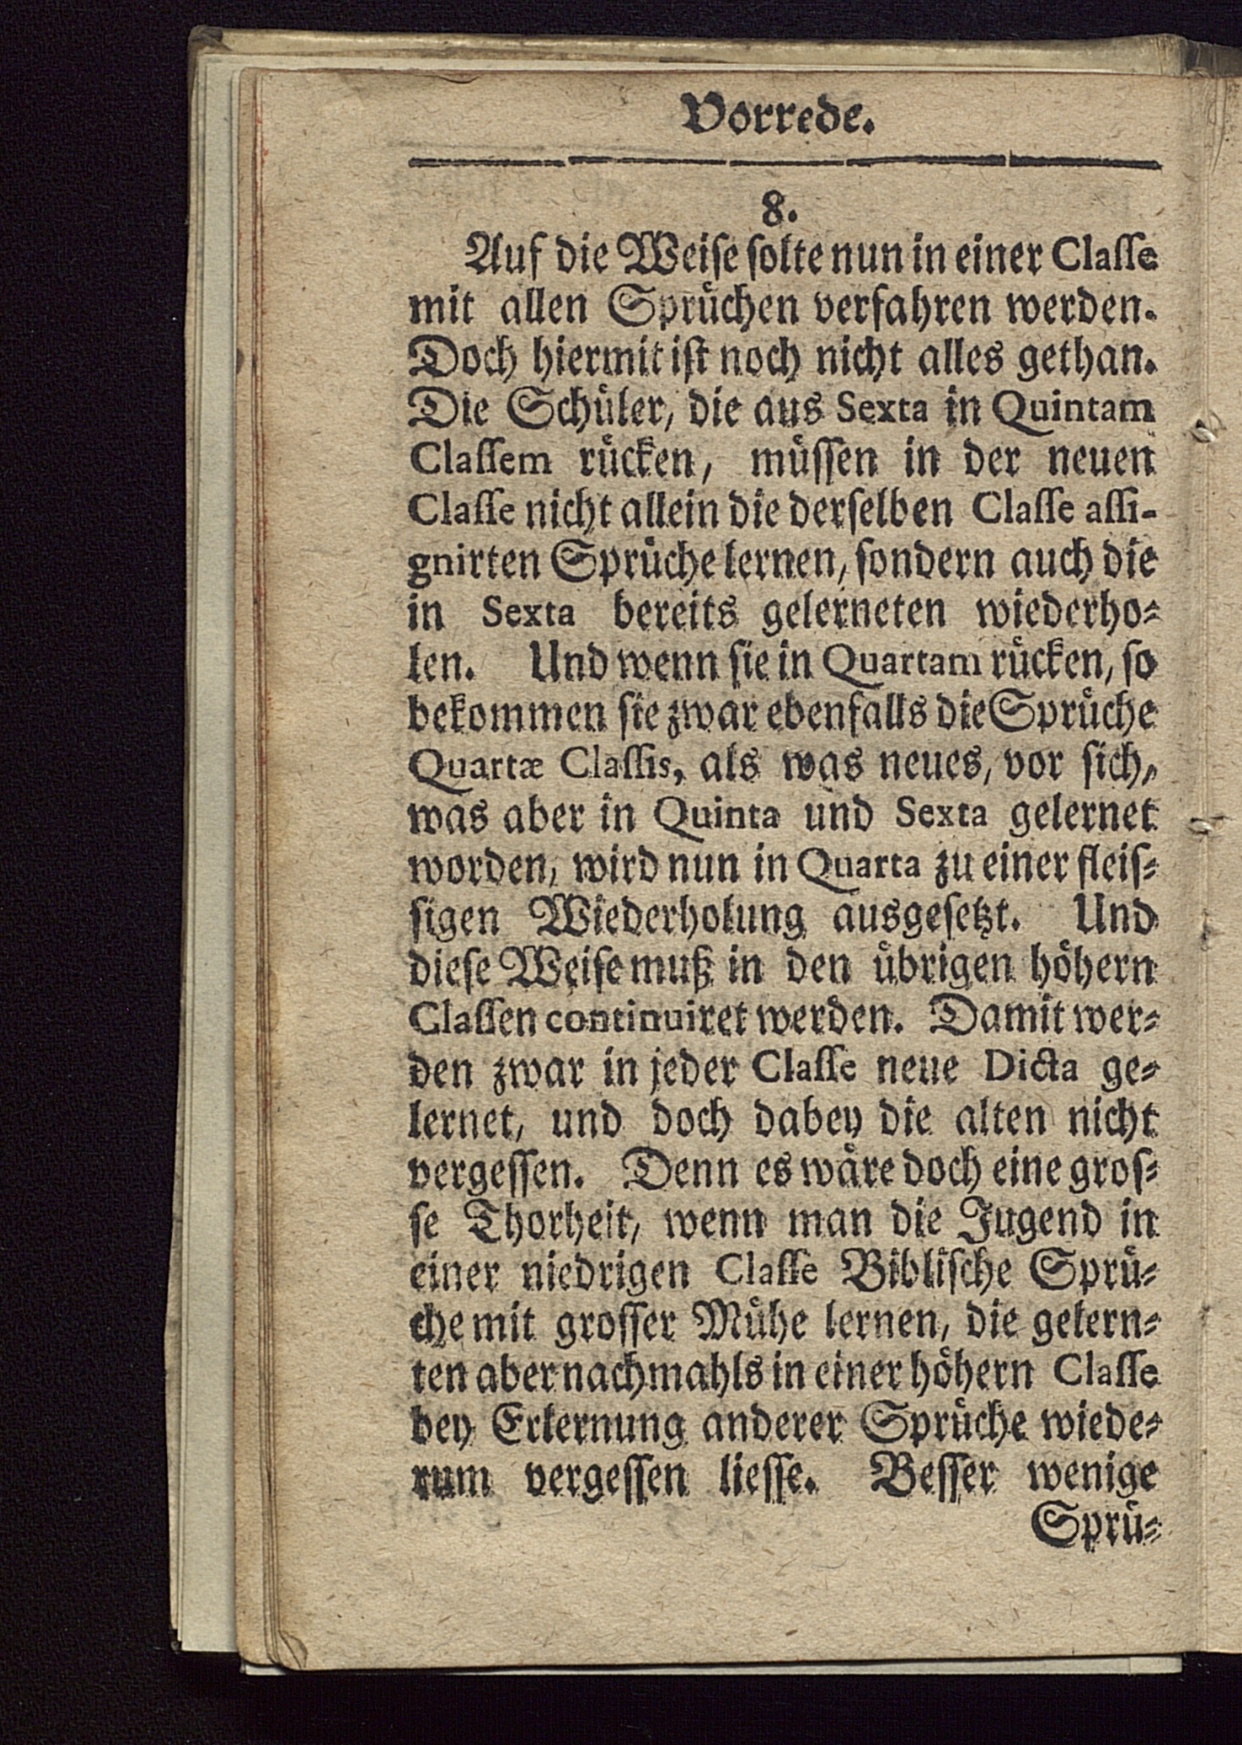 Vorrede.
8.
Auf die Weise solte nun in einer Classe
mit allen Sprüchen verfahren werden.
Doch hiermit ist noch nicht alles gethan.
Die Schüler, die aus Sexta in Quintam
Classem rücken, müssen in der neuen
Classe nicht allein die derselben Classe assi-
gnirten Sprüche lernen, sondern auch die
in Sexta bereits gelerneten wiederho-
len. Und wenn sie in Quartam rücken, so
bekommen sie zwar ebenfalls die Sprüche
Quartæ Classis, als was neues, vor sich,
was aber in Quinta und Sexta gelernet
worden, wird nun in Quarta zu einer fleis-
sigen Wiederholung ausgesetzt. Und
diese Weise muß in den übrigen höhern
Classen continuiret werden. Damit wer-
den zwar in jeder Classe neue Dicta ge-
lernet, und doch dabey die alten nicht
vergessen. Denn es wäre doch eine gros-
se Thorheit, wenn man die Jugend in
einer niedrigen Classe Biblische Sprü-
che mit grosser Mühe lernen, die gelern-
ten aber nachmahls in einer höhern Classe
bey Erlernung anderer Sprüche wiede-
rum vergessen liesse. Besser wenige
Sprü-